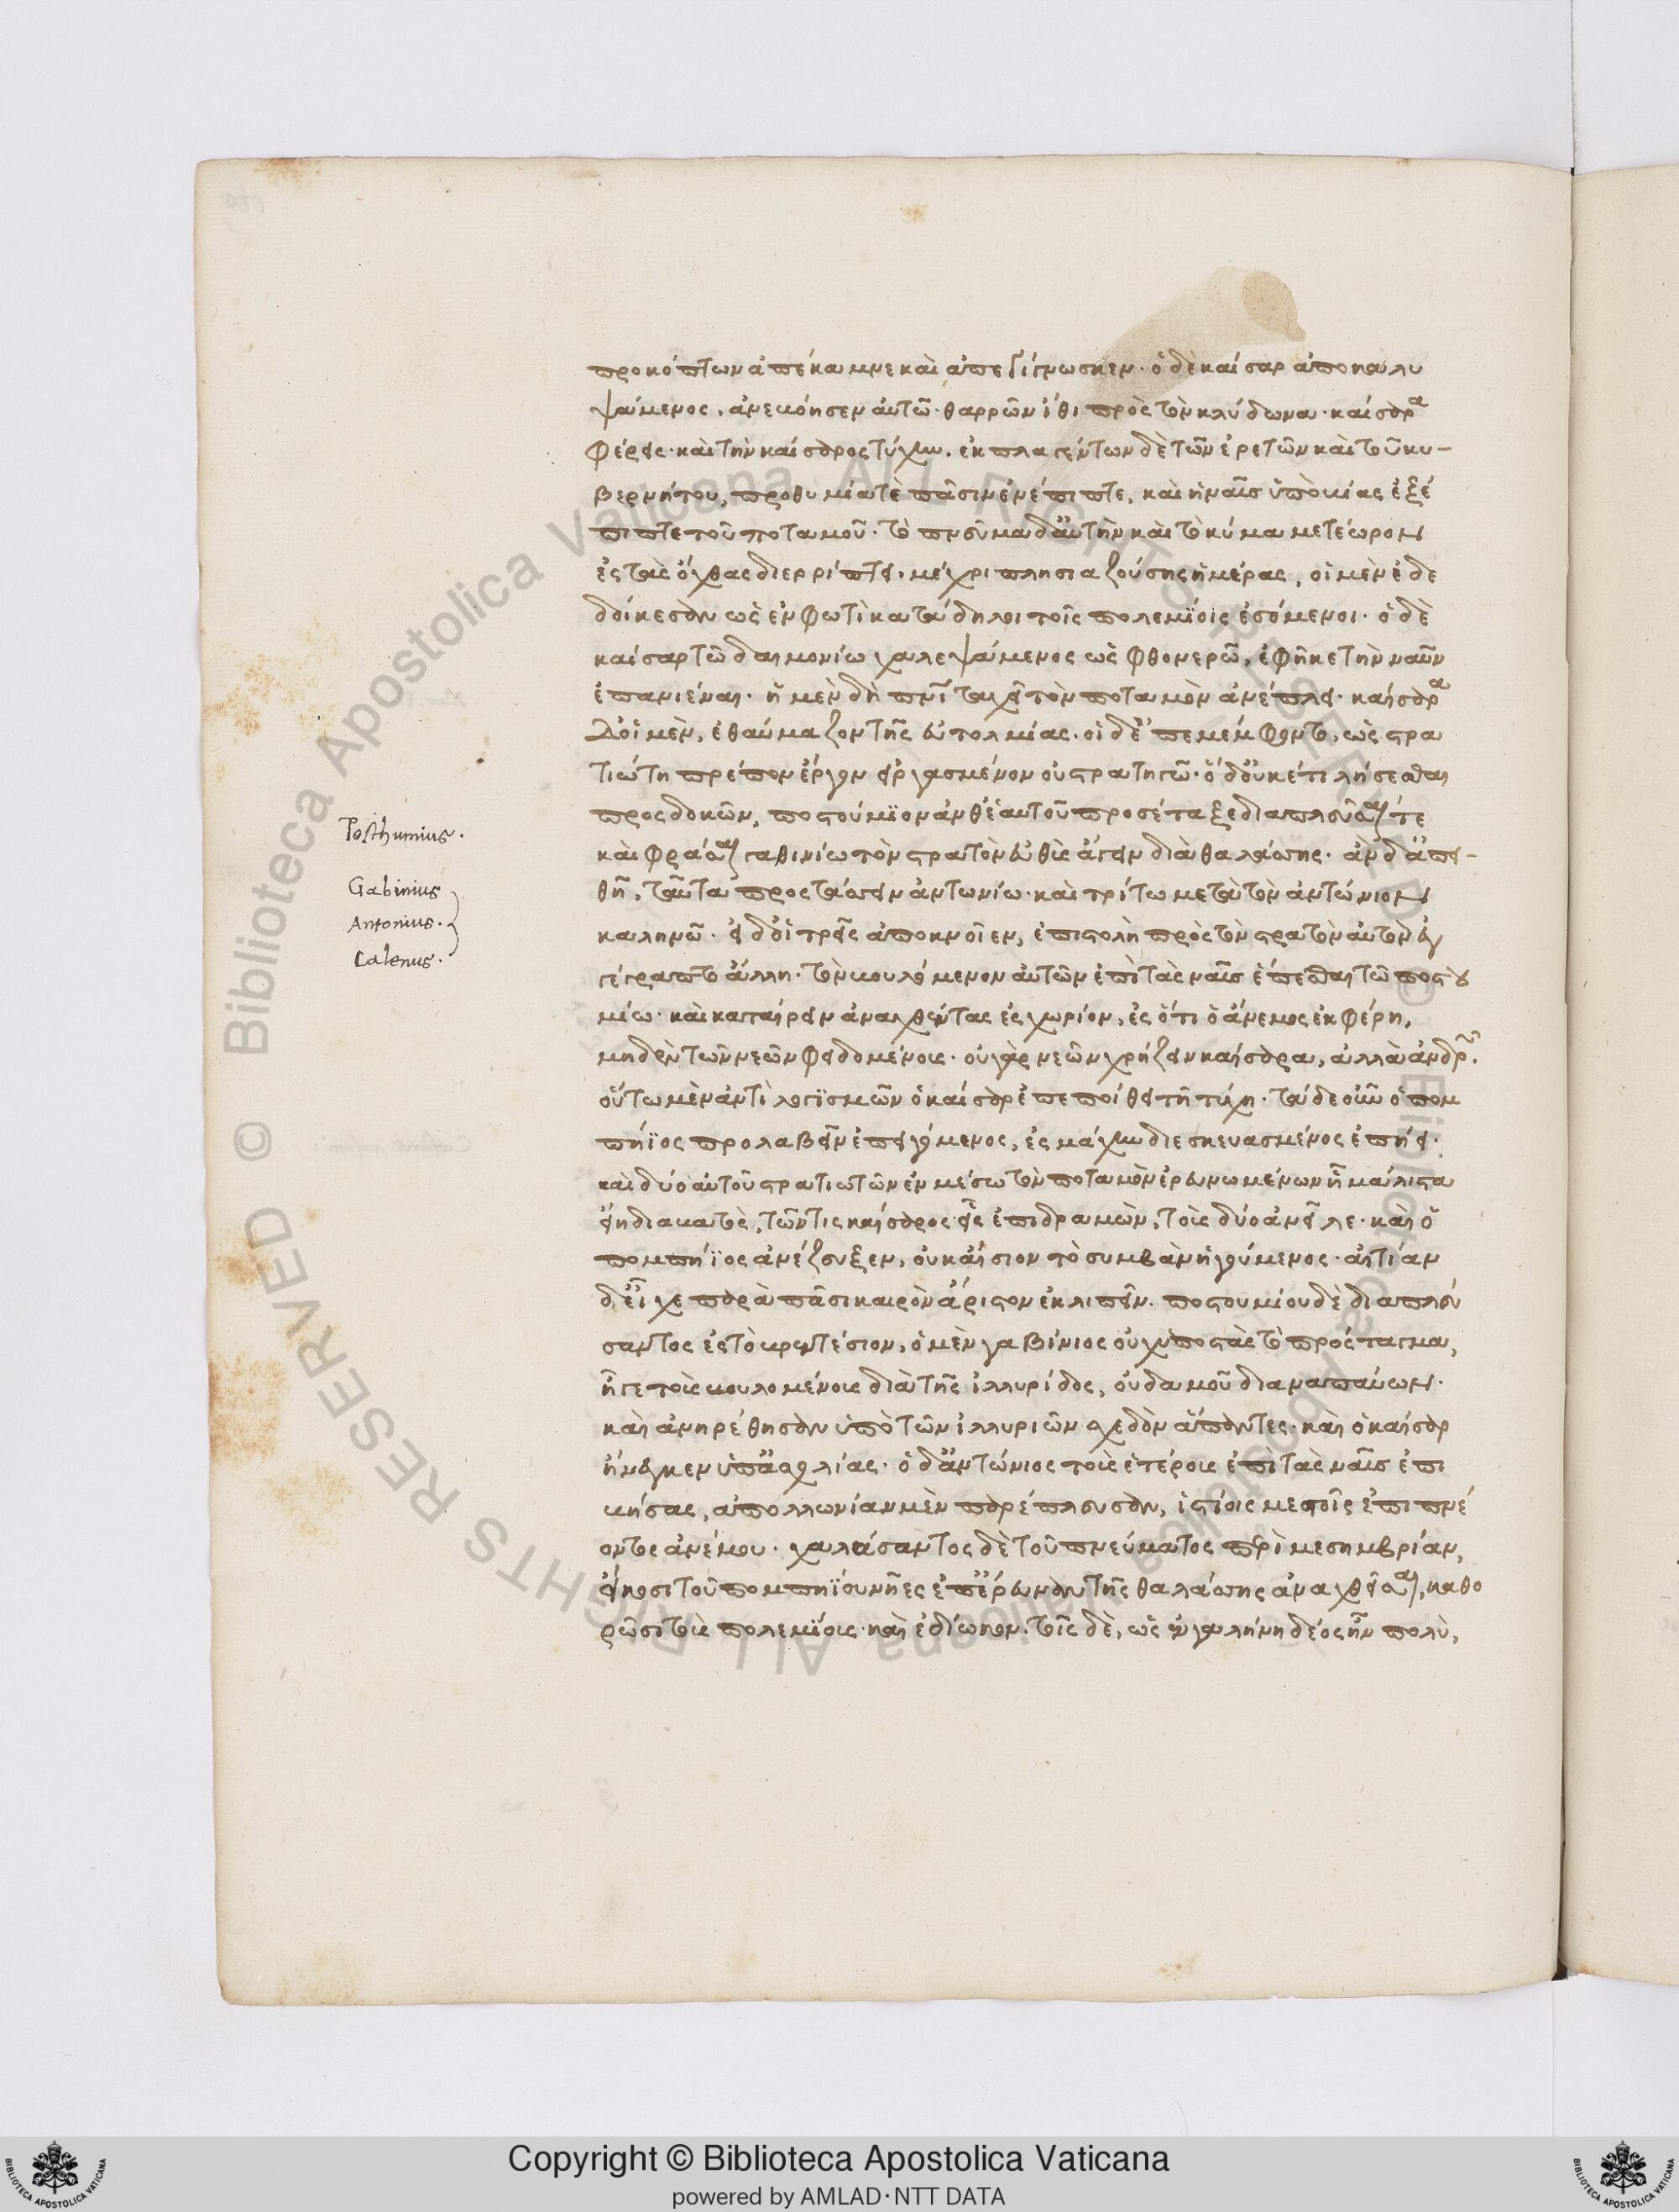 προκόπτων ἀπέκαμνε καὶ ἀπεγίγνωσκεν· ὁ δὲ καῖσαρ ἀποκαλυ
ψάμενος, ἀνεβόησεν αὐτῶ· θαρρῶν ἴθι πρὸς τὸν κλύδωνα· καίσαρα
φέρεις· καὶ τὴν καίσαρος τύχην. ἐκπλαγέντων δὲ τῶν ἐρετῶν καὶ τοῦ κυ-
βερνήτου, προθυμία τὲ πᾶσιν ἐνέπιπτε, καὶ ἡ ναῦς ὑπὸ βίας ἐξέ
πιπτε τοῦ ποταμοῦ. τὸ πνεῦμα δ' αὐτὴν καὶ τὸ κῦμα μετέωρον
ἐς τὰς ὄχθας διερρίπτει. μέχρι πλησιαζούσης ἡμέρας, οἱ μὲν ἐδε
δοίκεσαν ὡς ἐν φωτὶ κατάδηλοι τοῖς πολεμίοις ἐσόμενοι· ὁ δὲ
καῖσαρ τῶ δαιμονίω χαλεψάμενος ὡς φθονερῶ, ἐφῆκε τὴν ναῦν
ἐπανιέναι. ἡ μὲν δὴ πνεύματι ταχεῖ τὸν ποταμὸν ἀνέπλει· καίσαρα
δ' οἱ μὲν, ἐθαύμαζον τῆς εὐτολμίας. οἱ δ' ἐπεμέμφοντο, ὡς στρα
τιώτη πρέπον ἔργον εἰργασμένον οὐ στρατηγῶ. ὁ δ' οὐκέτι λήσεσθαι
προσδοκῶν, ποστούμιον ἀνθ' ἑαυτοῦ προσέταξε διαπλεῦσαί τε
καὶ φράσαι γαβινίω τὸν στρατὸν εὐθὺς ἄγειν διὰ θαλάσσης. ἂν δ' ἀπει-
θῆ, ταῦτα προστάσσειν ἀντωνίω· καὶ τρίτω μετὰ τὸν ἀντώνιον
καληνῶ. εἰ δ' οἱ τρεῖς ἀποκνοῖεν, ἐπιστολὴ πρὸς τὸν στρατὸν αὐτὸν ἐ
γέγραπτο ἄλλη· τὸν βουλόμενον αὐτῶν ἐπὶ τὰς ναῦς ἕπεσθαι τῶ ποστου
μίω· καὶ καταίρειν ἀναχθέντας ἐς χωρίον, ἐς ὅτι ὁ ἄνεμος ἐκφέρη,
μηδὲν τῶν νεῶν φειδομένους. οὐ γὰρ νεῶν χρήζειν καίσαρα, ἀλλὰ ἀνδρῶν.
οὕτω μὲν ἀντὶ λογισμῶν ὁ καῖσαρ ἐπεποίθει τῆ τύχη. τάδε οὖν ὁ πομ
πήϊος προλαβεῖν ἐπειγόμενος, ἐς μάχην διεσκευασμένος ἐπήει.
καὶ δύο αὐτοῦ στρατιωτῶν ἐν μέσω τὸν ποταμὸν ἐρευνωμένων ἧ μάλιστα
εἴη διαβατὸς, τῶν τις καίσαρος εἷς ἐπιδραμὼν, τοὺς δύο ἀνεῖλε· καὶ ὁ
πομπήϊος ἀνέζευξεν, οὐκ αἴσιον τὸ συμβὰν ἡγούμενος· αἰτίαν
δ' εἶχε παρὰ πᾶσι καιρὸν ἄριστον ἐκλιπεῖν. ποστουμίου δὲ διαπλεύ
σαντος ἐς τὸ βρεντέσιον, ὁ μὲν γαβίνιος οὐχ ὑποστὰς τὸ πρόσταγμα,
ἦγε τοὺς βουλομένους διὰ τῆς ἰλλυρίδος, οὐδαμοῦ διαναπαύων.
καὶ ἀνηρέθησαν ὑπὸ τῶν ἰλλυριῶν σχεδὸν ἅπαντες· καὶ ὁ καῖσαρ
ἤνεγκεν ὑπ' ἀσχολίας. ὁ δ' ἀντώνιος τοὺς ἑτέρους ἐπὶ τὰς ναῦς ἐπι
βήσας, ἀπολλωνίαν μὲν παρέπλευσαν, ἱστίοις μεστοῖς ἐπιπνέ
οντος ἀνέμου. χαλάσαντος δὲ τοῦ πνεύματος περὶ μεσημβρίαν,
εἴκοσι τοῦ πομπηΐου νῆες ἐπ' ἔρευναν τῆς θαλάσσης ἀναχθεῖσαι, καθο
ρῶσι τοὺς πολεμίους· καὶ ἐδίωκον. τοῖς δὲ, ὡς ἐν γαλήνη δέος ἦν πολὺ,
Posthumius.
Gabinius
Antonius.
Calenus.
Copyright © Biblioteca Apostolica Vaticana
powered by AMLAD·NTT DATA